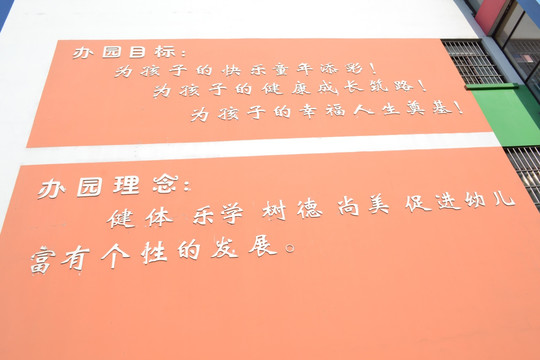 办园目标:
为孩子的快乐童年添彩!
为孩子的健康成长筑路!
为孩子的幸福人生奠基!
办园理念:
健体 乐学 树德 尚美 促进幼儿
富有个性的发展。